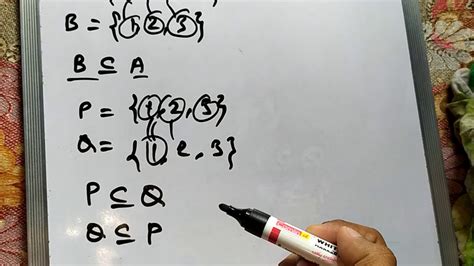 B = {1, 2, 3}
B ⊆ A
P = {1, 2, 3}
Q = {1, 2, 3}
P ⊆ Q
Q ⊆ P
WHIT